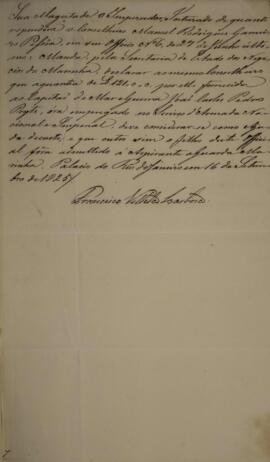 Sua Magestade o Imperador, Inteirado de quanto
expusera o Conselheiro Manoel Rodrigues Gameiro
Pessôa, em seu Officio Nº 6, de 27 de Junho ultimo;
Manda, pela Secretaria de Estado dos Negocios
da Marinha, declarar ao mesmo Conselheiro
que a quantia de £ 120.. 0.. por elle fornecida
ao Capitaõ de Mar e Guerra José Carlos Pedro
ora empregado no Serviço d'Armada Nacional
e Imperial, deve considerar-se como
e que outro sim o filho de te Official
fôra admittido a Aspirante a Guarda Marinha.
Palacio do Rio de Janeiro em 16 de Setembro
de 1825.
Francisco Villela Barboza